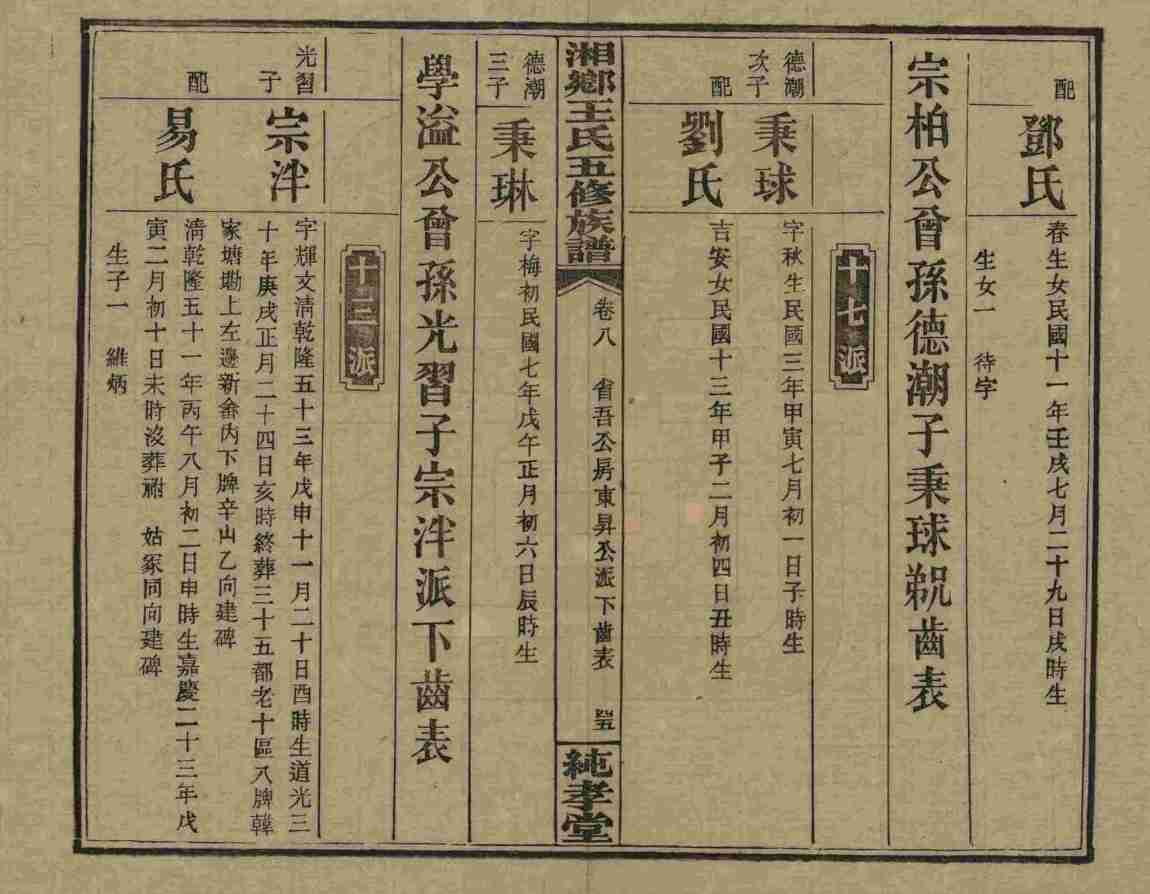 配
鄧氏
春生女民國十一年壬戌七月二十九日戌時生
生女一　待字
宗柏公曾孫德潮子秉球㲋齒表
十七派
德潮次子
秉球
字秋生民國三年甲寅七月初一日子時生
配
劉氏
吉安女民國十三年甲子二月初四日丑時生
湘鄉王氏五修族譜
卷八　省吾公房東昇公派下齒表
純孝堂
德潮三子
秉琳
字梅初民國七年戊午正月初六日辰時生
學溢公曾孫光習子宗泮派下齒表
十三派
光習子
宗泮
字輝文清乾隆五十三年戊申十一月二十日酉時生道光三
十年庚戌正月二十四日亥時終葬三十五都老十區八牌韓
家塘坳上左邊新畬內下牌辛山乙向建碑
配
易氏
清乾隆五十一年丙午八月初二日申時生嘉慶二十三年戊
寅二月初十日未時沒葬祔　姑冢同向建碑
生子一　維炳